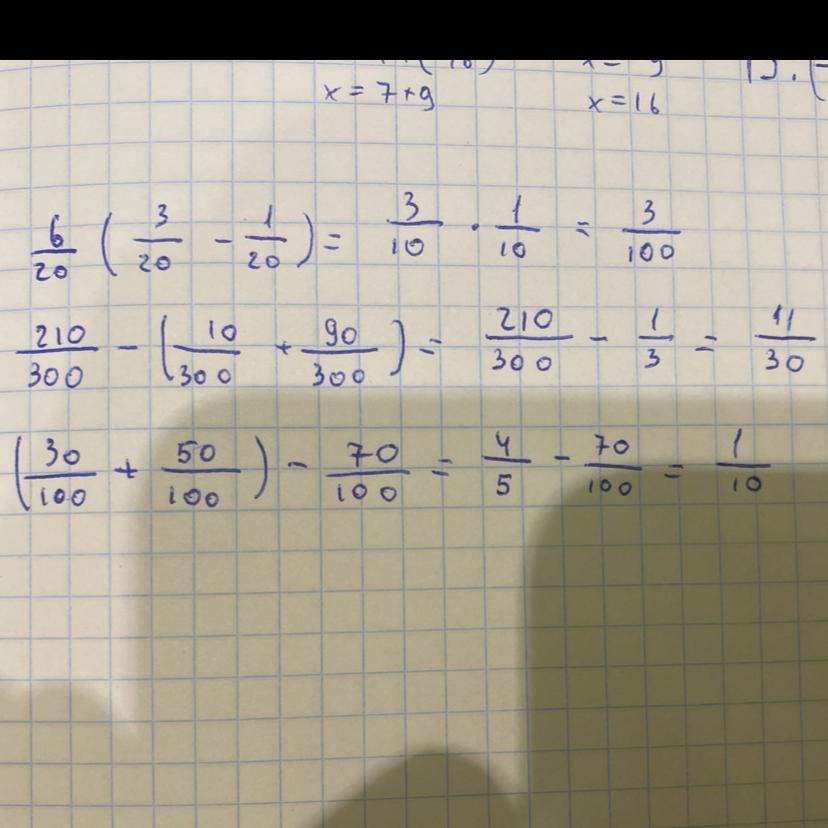 x = 7+9 x = 16
6/20 ( 3/20 - 1/20 ) = 3/10 · 1/10 = 3/100
210/300 - ( 10/300 + 90/300 ) = 210/300 - 1/3 = 11/30
( 30/100 + 50/100 ) - 70/100 = 4/5 - 70/100 = 1/10